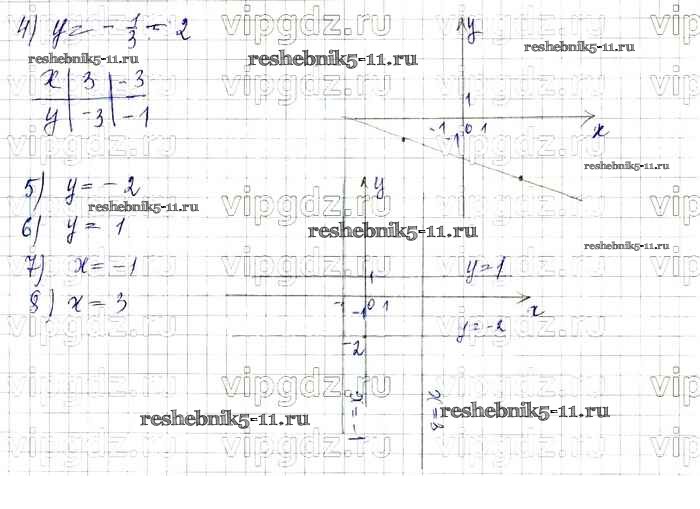 4) y = - 1/3 - 2
x | 3 | -3
y | -3 | -1
y
1
-1 0 1
-1
x
5) y = -2
6) y = 1
7) x = -1
8) x = 3
y
1
-1 0 1
-1
x
-2
y=1
y=-2
x=-1
x=3
vipgdz.ru
reshebnik5-11.ru